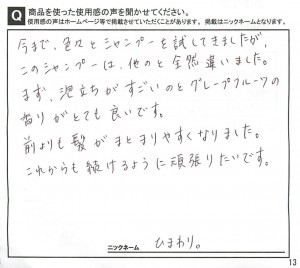 Q 商品を使った使用感の声を聞かせてください。
使用感の声はホームページ等で掲載させていただくことがあります。 掲載はニックネームとなります。
今まで、色々とシャンプーを試してきましたが、
このシャンプーは、他のと全然違いました。
まず、泡立ちがすごいのとグレープフルーツの
香りがとても良いです。
前よりも髪がまとまりやすくなりました。
これからも続けるように頑張りたいです。
ニックネーム ひまわり。
13